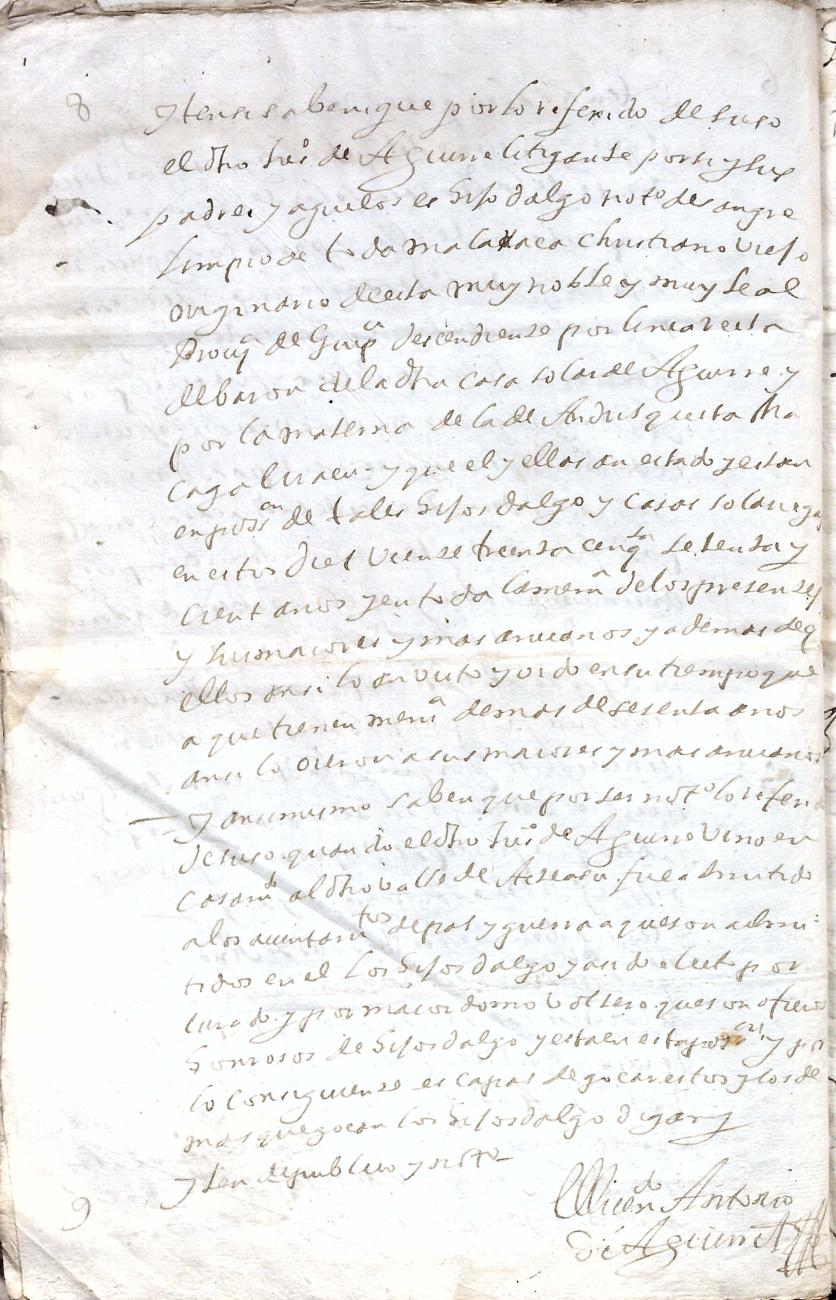 8 yten si saben que por lo referido de suso
el dho Fr.co de Aguirre litigante por si y sus
padres y aguelos es hijo dalgo noto de sangre
limpio de toda mala raca christiano viejo
originario de esta muy noble y muy leal
Prouª de Guipª descendiente por linea recta
de baron de la dha casa solar de Aguirre y
por la materna de la de Andusqueta
y que el y ellos an estado y estan
en posson de tales hijos dalgo y casas solariegas
en estos diez veente treenta cinqta sesenta y
cient anos y en toda la memª de los presentes
y sus maiores y mas ancianos y ademas de q
ellos ansi lo an visto y oido en su tiempo que
a que tienen memª de mas de sesenta anos
ansi lo oieron a sus maiores y mas ancianos
y ansimismo saben que por ser noto lo referi
de suso quando el dho Fr.co de Aguirre vino en
casamto al dho valle de Asteasu fue admitido
a los aiuntamtos de paz y guerra a que son admi
tidos en el los hijos dalgo y a sido electo por
jurado y por maiordomo bolsero que son oficios
honrosos de hijos dalgo y esta en esta posson y por
lo consiguiente es capas de gocar estos y los de
mas que gocan los hijos dalgo digan
9 yten de publico y noto
El Licendo Antonio
de Aguirre